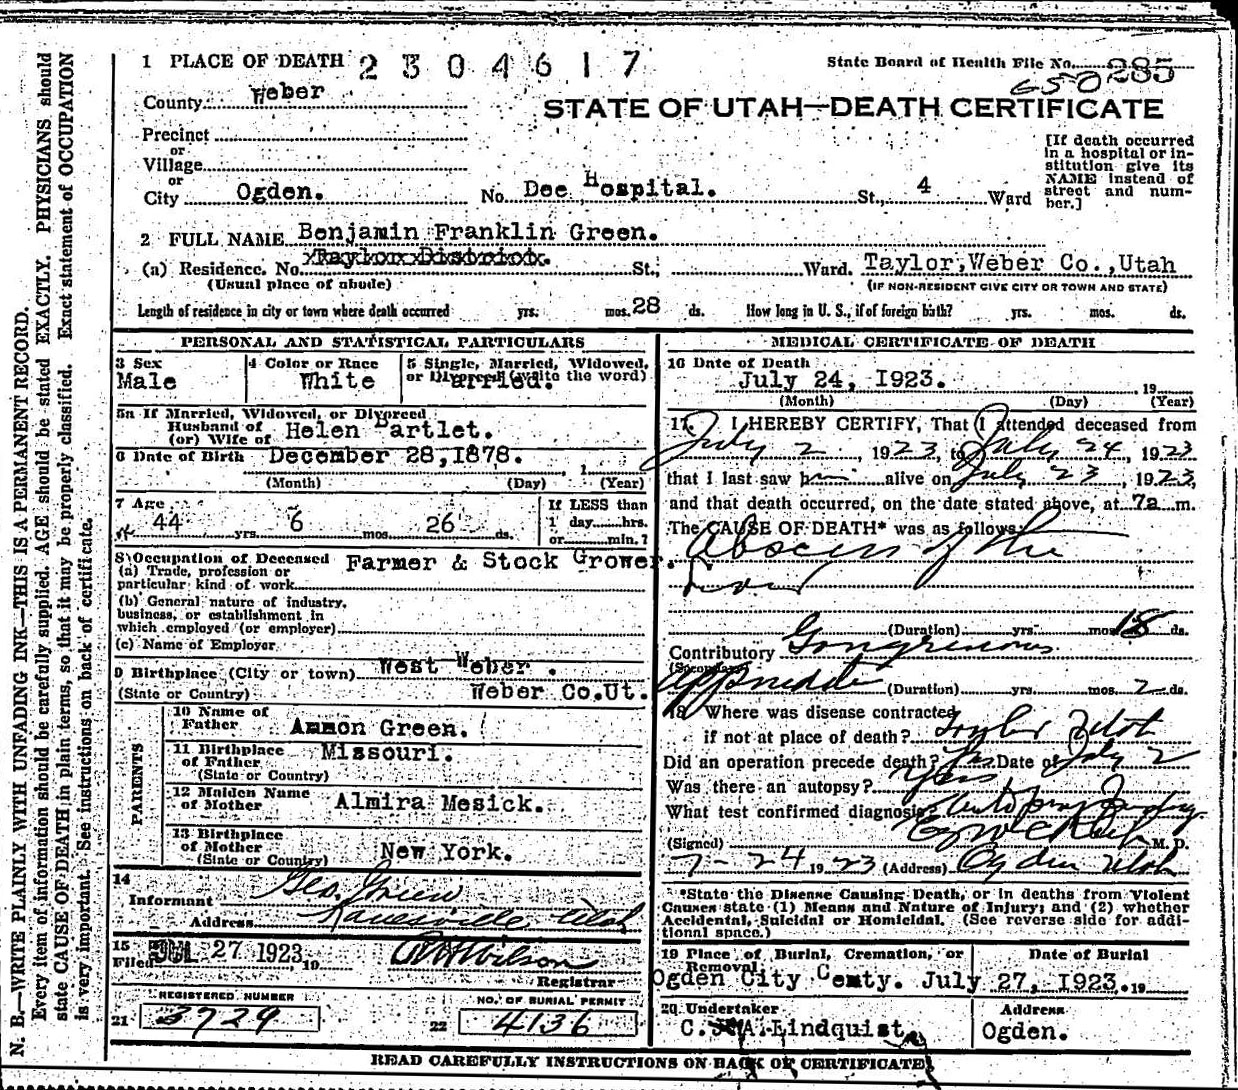 1 PLACE OF DEATH 2 3 0 4 6 1 7
State Board of Health File No. 285
650
County Weber
STATE OF UTAH—DEATH CERTIFICATE
Precinct
or
Village
or
City Ogden. No. Dee Hospital. St., 4 Ward
[If death occurred
in a hospital or in-
stitution give its
NAME instead of
street and num-
ber.]
2 FULL NAME Benjamin Franklin Green.
Taylor District.
(a) Residence. No. St., Ward. Taylor, Weber Co., Utah
(Usual place of abode) (IF NON-RESIDENT GIVE CITY OR TOWN AND STATE)
Length of residence in city or town where death occurred yrs. mos. 28 ds. How long in U. S., if of foreign birth? yrs. mos. ds.
PERSONAL AND STATISTICAL PARTICULARS
3 Sex 4 Color or Race 5 Single, Married, Widowed,
or Divorced (write the word)
Male White arried.
5a If Married, Widowed, or Divorced
Husband of
(or) Wife of Helen Bartlet.
6 Date of Birth December 28, 1878. , 1
(Month) (Day) (Year)
7 Age If LESS than
44 yrs. 6 mos. 26 ds. 1 day hrs.
or min.?
8 Occupation of Deceased Farmer & Stock Grower.
(a) Trade, profession or
particular kind of work
(b) General nature of industry,
business, or establishment in
which employed (or employer)
(c) Name of Employer
9 Birthplace (City or town) West Weber .
(State or Country) Weber Co. Ut.
PARENTS
10 Name of
Father Ammon Green.
11 Birthplace
of Father Missouri.
(State or Country)
12 Maiden Name
of Mother Almira Mesick.
13 Birthplace
of Mother New York.
(State or Country)
14
Informant Geo. Green
Address Kanesville Utah
15 Filed JUL 27 1923 , 19 Wilson
Registrar
REGISTERED NUMBER NO. OF BURIAL PERMIT
21 3729 22 4136
MEDICAL CERTIFICATE OF DEATH
16 Date of Death
July 24, 1923. 19
(Month) (Day) (Year)
17. I HEREBY CERTIFY, That I attended deceased from
July 2 , 1923, to July 24, 1923
that I last saw him alive on July 23 , 1923,
and that death occurred, on the date stated above, at 7a m.
The CAUSE OF DEATH* was as follows:
Abscess of the
Liver
(Duration) yrs. mos. 18 ds.
Contributory Gangrenous
(Secondary)
Appendix (Duration) yrs. mos. 2 ds.
18 Where was disease contracted
if not at place of death? Taylor Utah
Did an operation precede death? Yes Date of July 2
Was there an autopsy? Yes
What test confirmed diagnosis? Autopsy Findings
(Signed) M. D.
7-24 1923 (Address) Ogden Utah
*State the Disease Causing Death, or in deaths from Violent
Causes state (1) Means and Nature of Injury; and (2) whether
Accidental, Suicidal or Homicidal. (See reverse side for addi-
tional space.)
19 Place of Burial, Cremation, or Date of Burial
Removal
Ogden City Cemty. July 27, 1923. 19
20 Undertaker Address
C. A. Lindquist Ogden.
READ CAREFULLY INSTRUCTIONS ON BACK OF CERTIFICATE
N. B.—WRITE PLAINLY WITH UNFADING INK—THIS IS A PERMANENT RECORD.
Every item of information should be carefully supplied. AGE should be stated EXACTLY. PHYSICIANS should
state CAUSE OF DEATH in plain terms, so that it may be properly classified. Exact statement of OCCUPATION
is very important. See instructions on back of certificate.